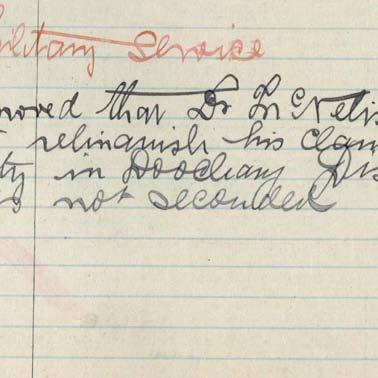 ilitary Service
moved that Dr McNelis
relinquish his claim
ty in Doochary Dis
s not seconded